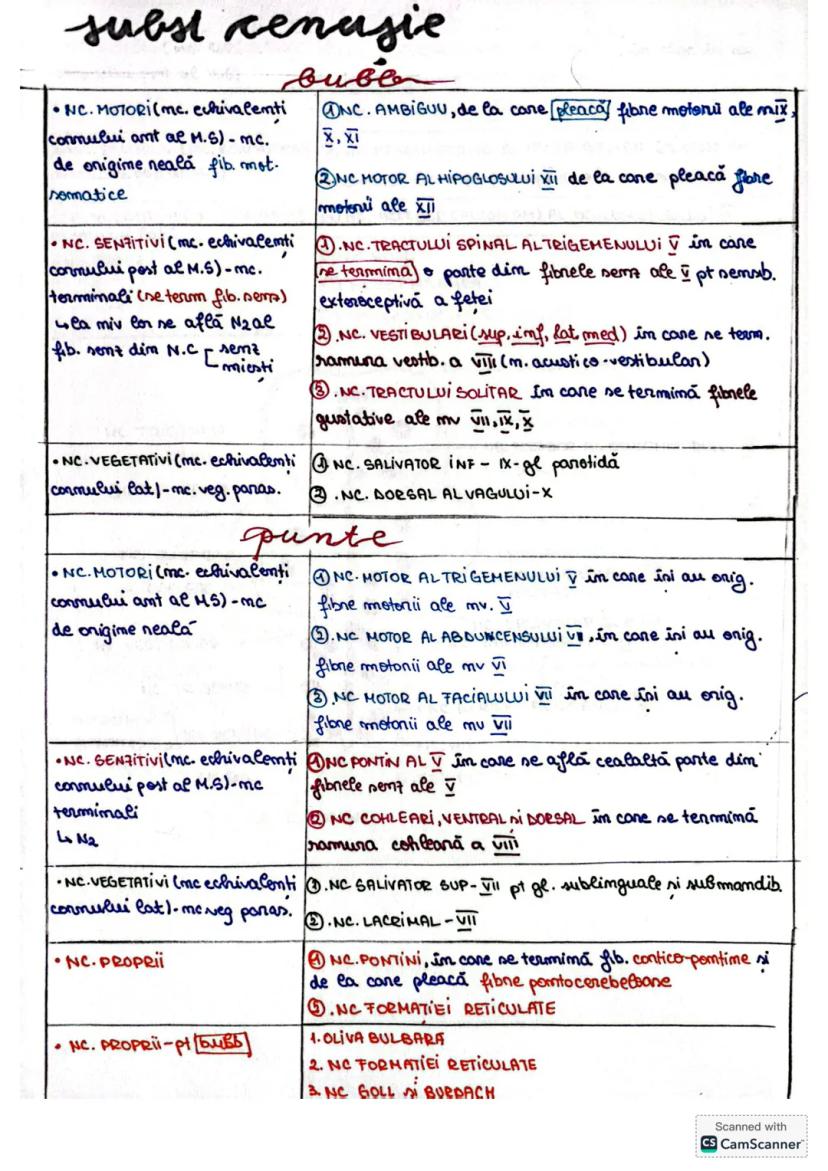 subst cenușie
bulb
• NC. MOTORI (nc. echivalenți
cornului ant al M.S) - nc.
de origine reală fib. mot.
somatice
① NC. AMBIGUU, de la care pleacă fibre motorii ale n IX,
X, XI
② NC MOTOR AL HIPOGLOSULUI XII de la care pleacă fibre
motorii ale XII
• NC. SENZITIVI (nc. echivalenți
cornului post al M.S) - nc.
terminali (se term fib. senz)
↳ la niv lor se află N2 al
fib. senz din N.C senz
micști
① .NC. TRACTULUI SPINAL AL TRIGEMENULUI V în care
se termină o parte din fibrele senz ale V pt sensb.
exteroceptivă a feței
② .NC. VESTIBULARI (sup, inf, lat, med) în care se term.
ramura vestib. a VIII (n. acustico-vestibular)
③ .NC. TRACTULUI SOLITAR în care se termină fibrele
gustative ale nv VII, IX, X
• NC. VEGETATIVI (nc. echivalenți
cornului lat) - nc. veg. paras.
① NC. SALIVATOR INF - IX - gl parotidă
② .NC. DORSAL AL VAGULUI - X
punte
• NC. MOTORI (nc. echivalenți
cornului ant al M.S) - nc
de origine reală
① NC. MOTOR AL TRIGEMENULUI V în care își au orig.
fibre motorii ale nv. V
② .NC MOTOR AL ABDUNCENSULUI VII, în care își au orig.
fibre motorii ale nv VI
③ .NC MOTOR AL FACIALULUI VII în care își au orig.
fibre motorii ale nv VII
• NC. SENZITIVI (nc. echivalenți
cornului post al M.S) - nc
terminali
↳ N2
① NC PONTIN AL V în care se află cealaltă parte din
fibrele senz ale V
② NC COHLEARI, VENTRAL și DORSAL în care se termină
ramura cohleară a VIII
• NC. VEGETATIVI (nc echivalenți
cornului lat) - nc veg paras.
① .NC SALIVATOR SUP - VII pt gl. sublinguale și submandib.
② .NC. LACRIMAL - VII
• NC. PROPRII
① NC. PONTINI, în care se termină fib. cortico-pontine și
de la care pleacă fibre pontocerebeloase
② .NC FORMAȚIEI RETICULATE
• NC. PROPRII - pt bulb
1. OLIVA BULBARĂ
2. NC FORMAȚIEI RETICULATE
3. NC GOLL și BURDACH
Scanned with
CS CamScanner